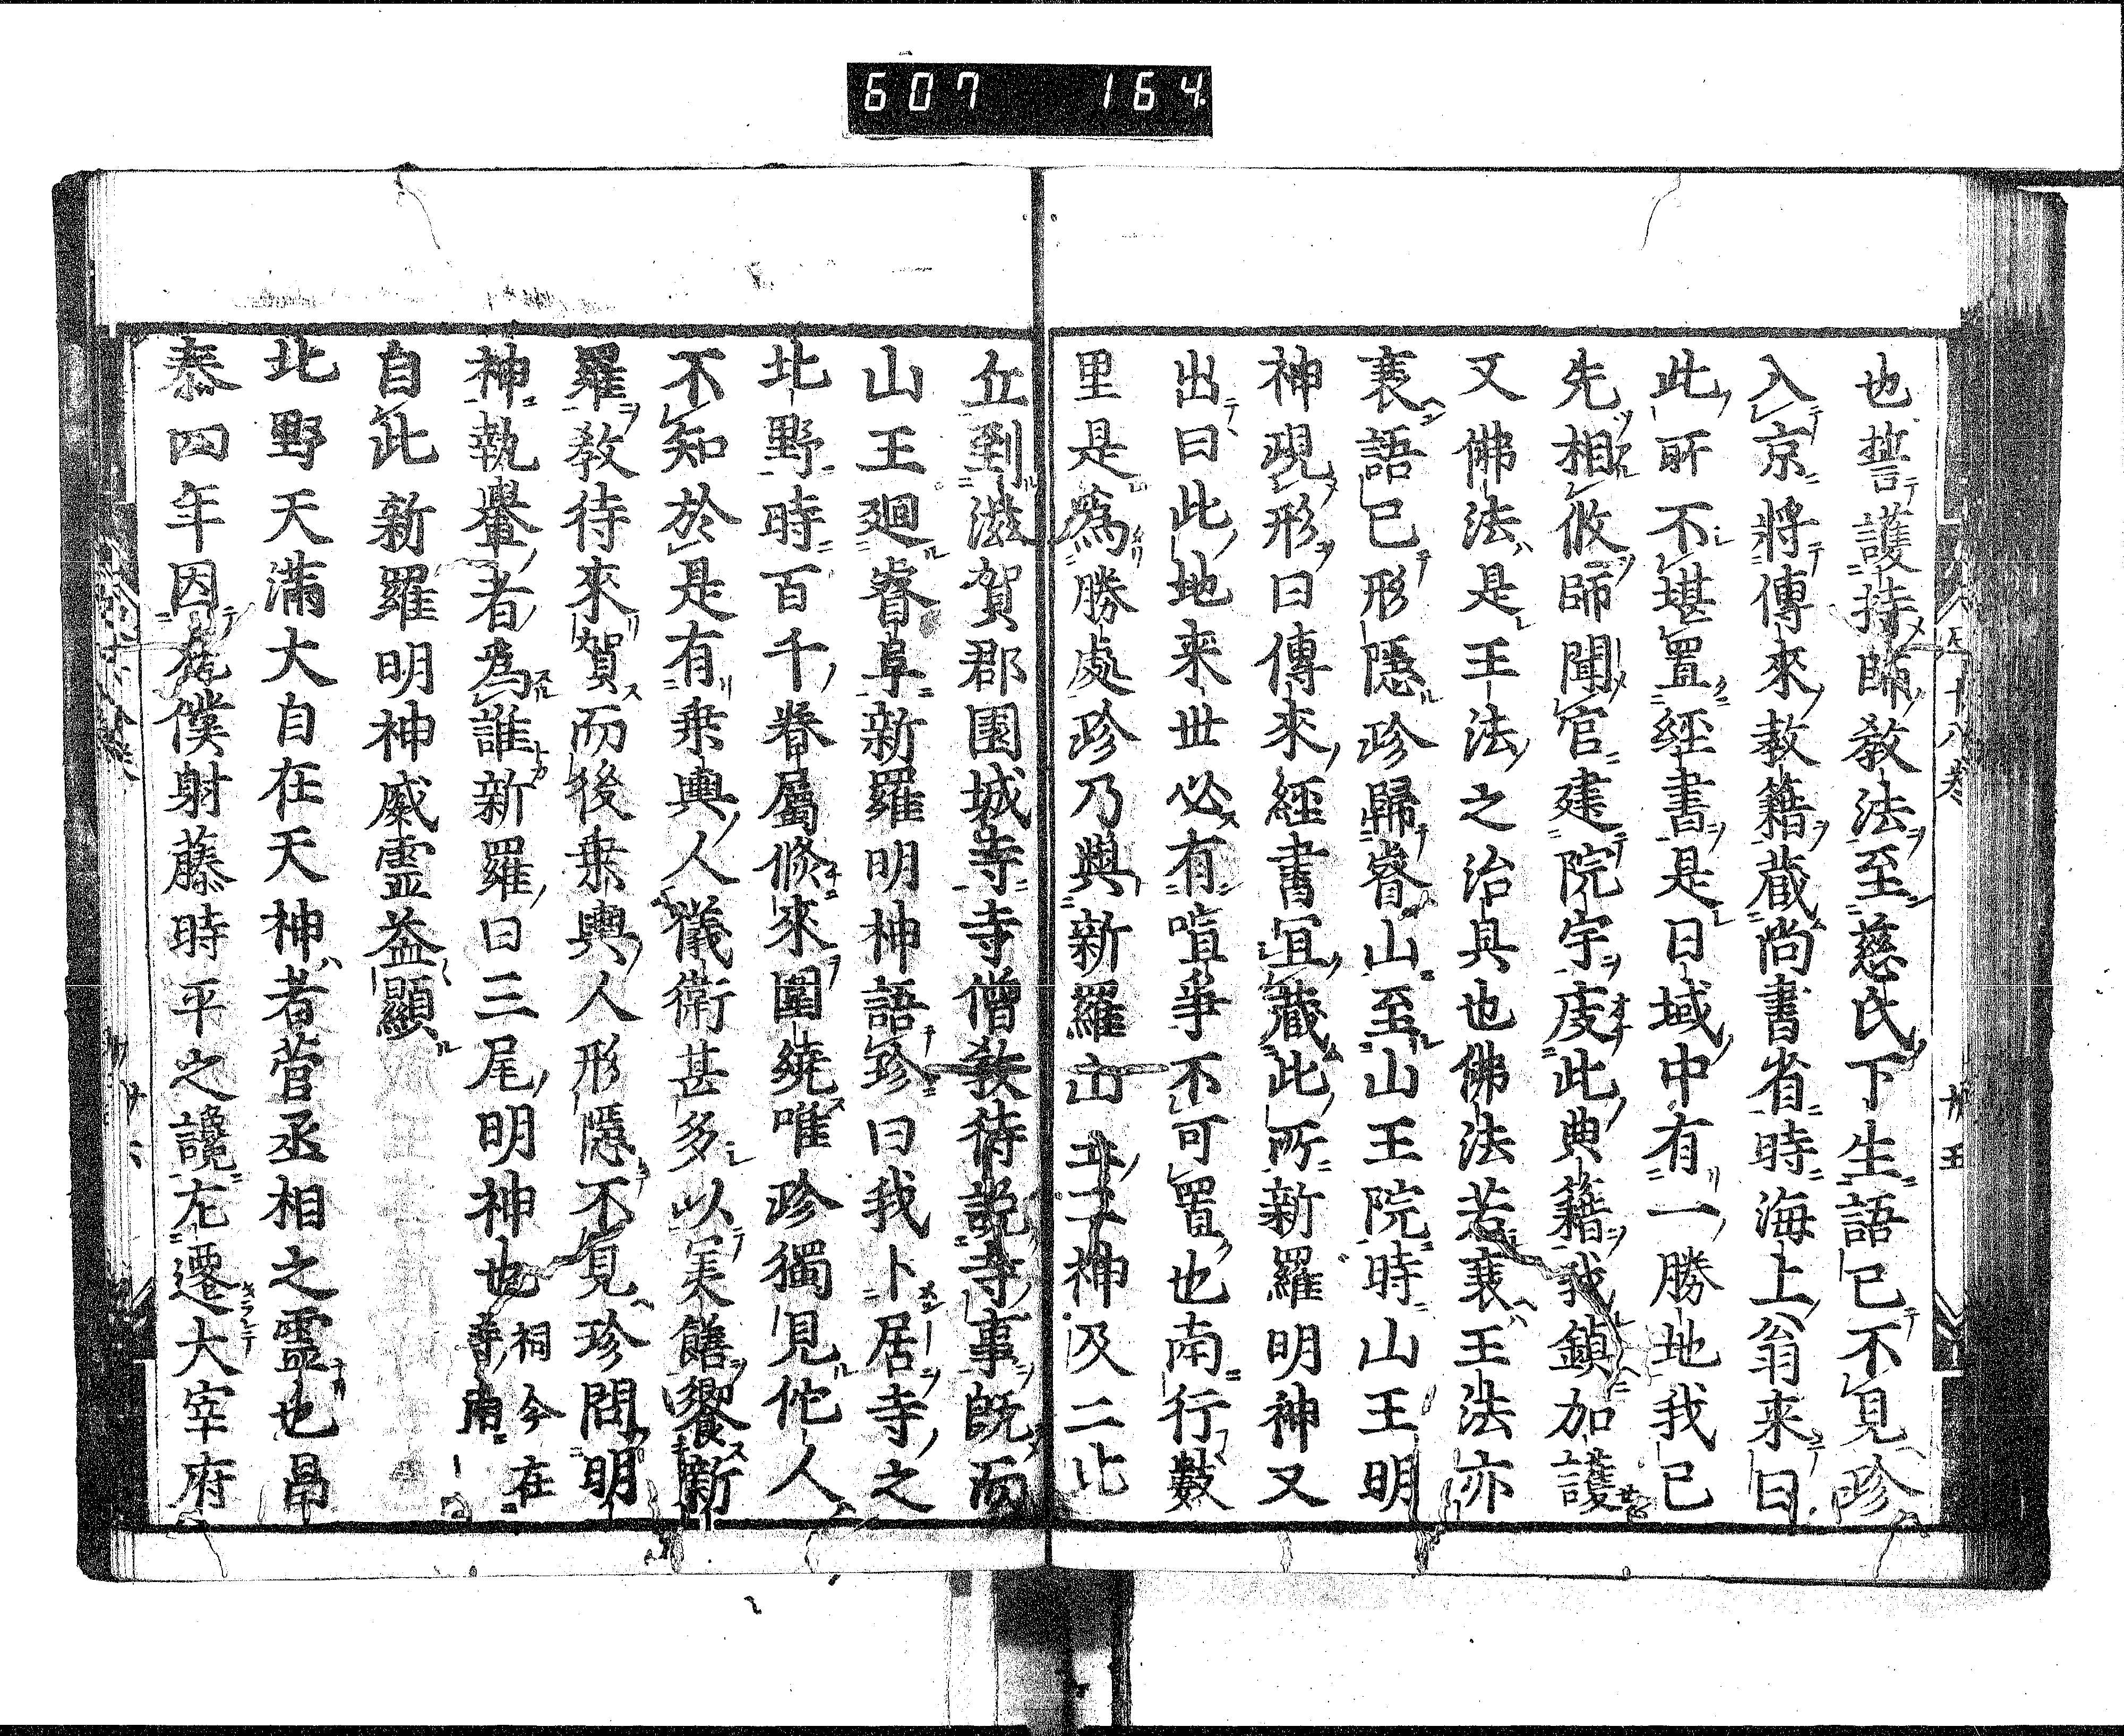 607 164
也誓護持師教法至慈氏下生語已不見珍
入京將傳來教籍藏尚書省時海上翁来曰
此所不堪置經書是日域中有一勝地我已
先相攸師聞官建院宇庋此典籍我鎮加護
又佛法是王法之治具也佛法若衰王法亦
衰語已形隱珍歸睿山至山王院時山王明
神現形曰傳來經書冝藏此所新羅明神又
出曰此地来世必有喧爭不可置也南行數
里是為勝處珍乃與新羅山王二神及二比
丘到滋賀郡園城寺寺僧教待說寺事既而
山王廻睿阜新羅明神語珍曰我卜居寺之
北野時百千眷屬倏來圍繞唯珍獨見佗人
不知於是有乗輿人儀衛甚多以美饍饗新
羅教待來賀而後乗輿人形隱不見珍問明
神執轝者爲誰新羅曰三尾明神也祠今在寺南
自此新羅明神威靈益顯
北野天滿大自在天神者菅丞相之靈也昌
泰四年因左僕射藤時平之讒左遷大宰府